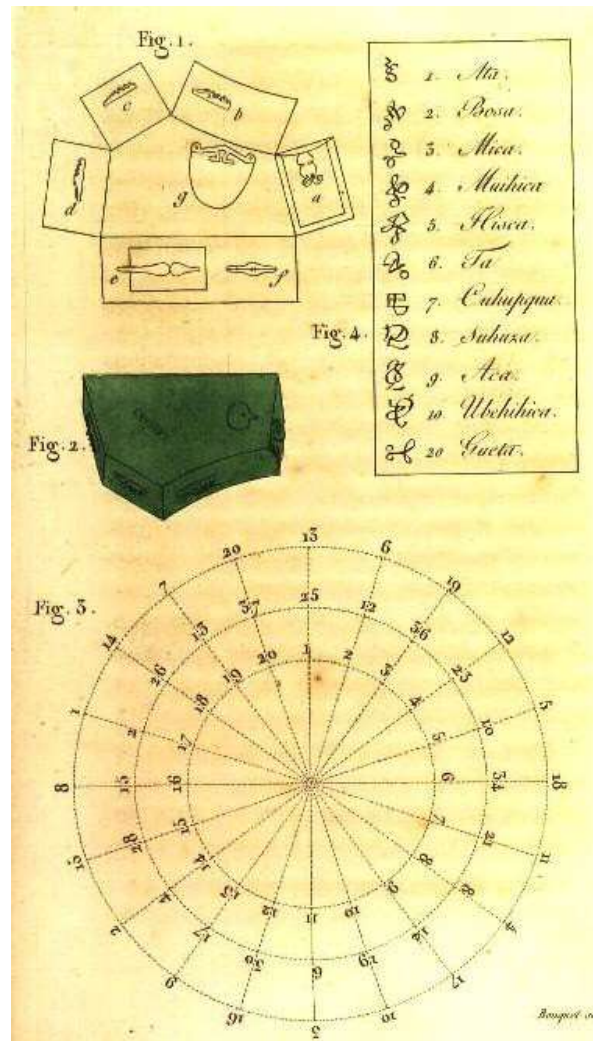 Fig. 1.
c
b
d
g
a
e
f
1. Ata.
2. Bosa.
3. Mica.
4. Muihica
5. Hisca.
6. Ta
7. Cuhupqua.
8. Suhuza.
9. Aca.
10. Ubchihica.
20 Gueta.
Fig. 4.
Fig. 2.
Fig. 3.
13 6 19 12 5 18 11 4 17 10 3 16 9 2 15 8 1 14 7 20
25 12 36 23 10 34 21 8 19 6 30 17 4 28 15 2 26 13 37
1 2 3 4 5 6 7 8 9 10 11 12 13 14 15 16 17 18 19 20
Bouquet